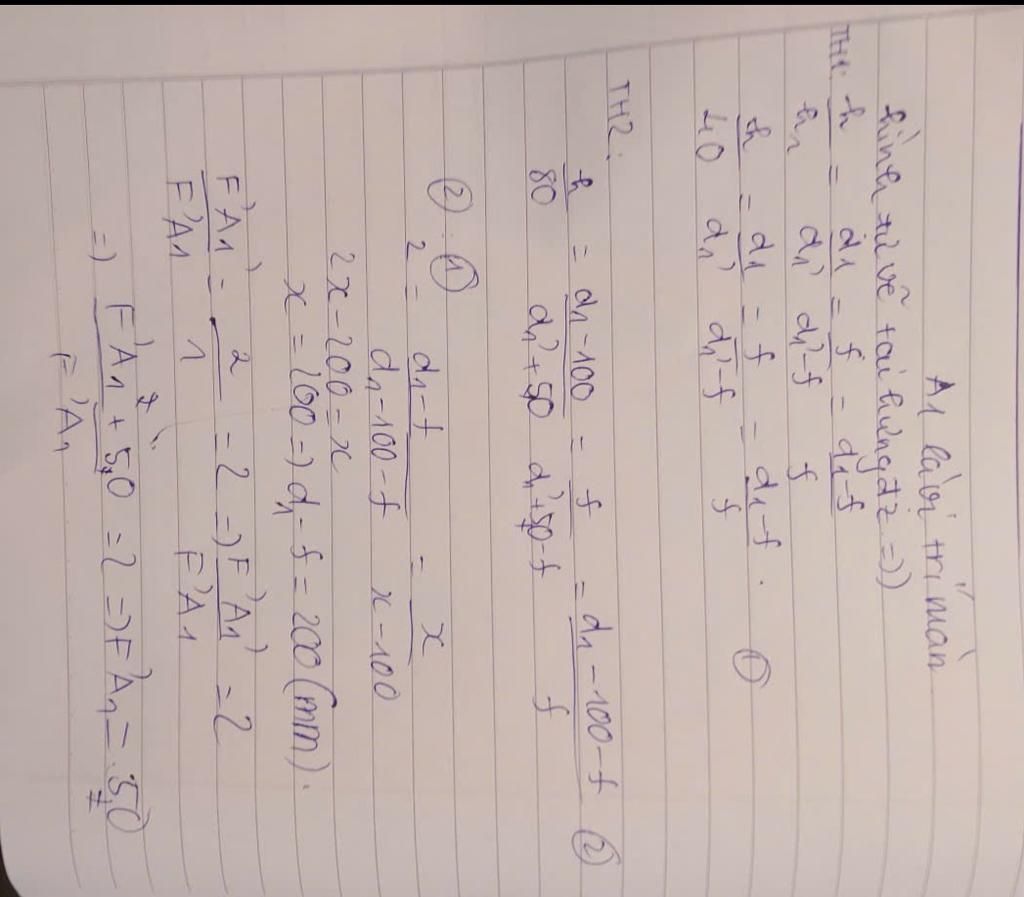 A₁ là vị trí màn
hình tự vẽ tai hứng đz =))
TH1: h/h₁ = d₁/d₁' = f/(d₁'-f) = (d₁-f)/f
h/40 = d₁/d₁' = f/(d₁'-f) = (d₁-f)/f . ①
TH2:
h/80 = (d₁-100)/(d₁'+50) = f/(d₁'+50-f) = (d₁-100-f)/f ②
②:① 2 = (d₁-f)/(d₁-100-f) = x/(x-100)
2x-200=x
x=200 => d₁-f = 200 (mm).
F'A₁'/F'A₁ = 2/1 = 2 => F'A₁'/F'A₁ = 2
=) (F'A₁ + 50)/F'A₁ = 2 => F'A₁ = 50